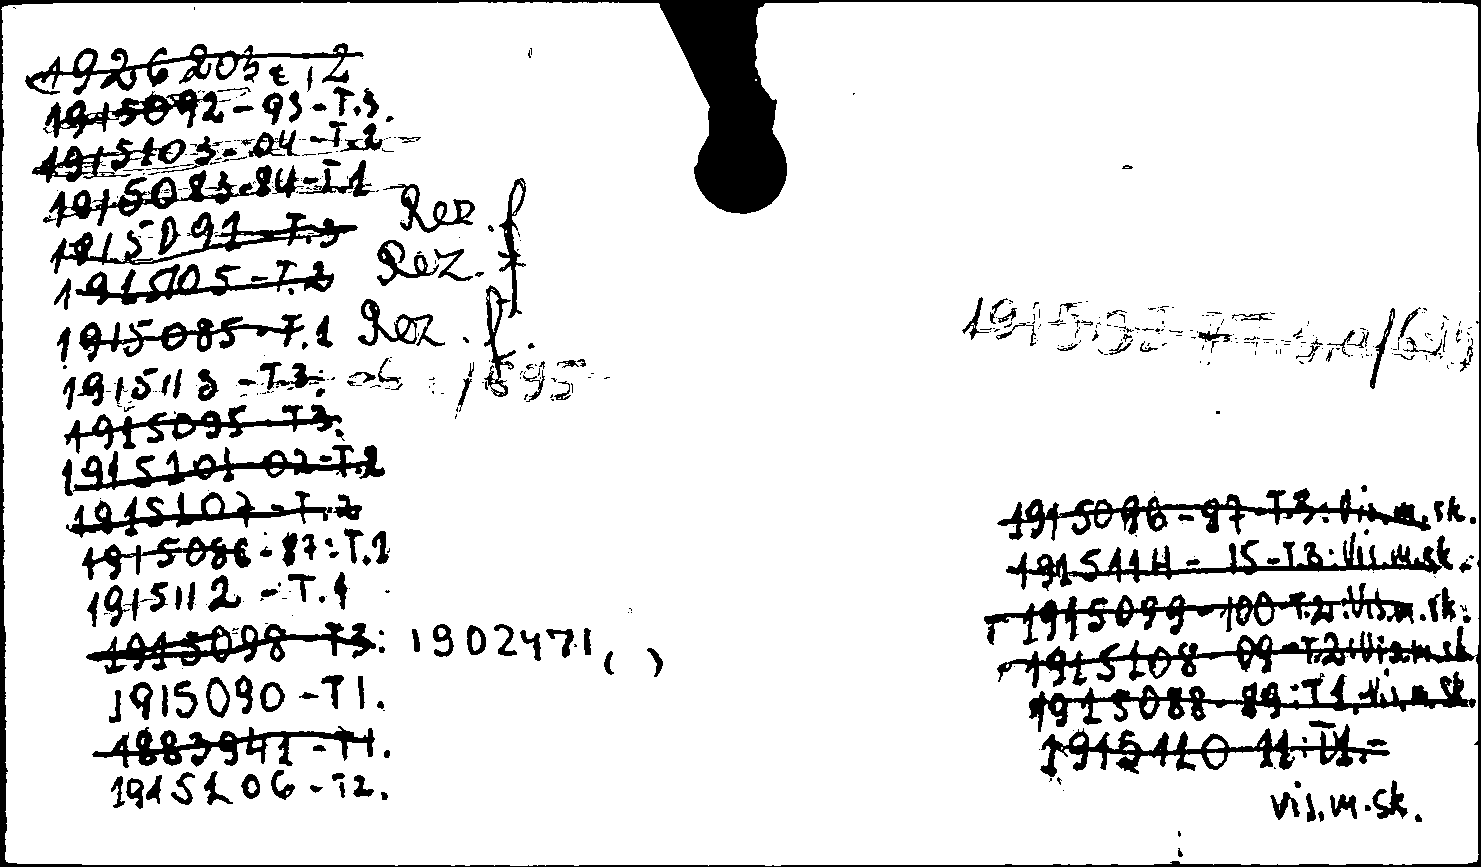 1926203 , 2
1915092-93-T.3.
1915103-04-T.2
1915083-84-T.1
1915091-T.3 Rez. f
1915105-T.2 Rez. f
1915085-T.1 Rez. f.
1915113-T.3: /695
1915095-T3.
1915101 02-T.2
1915107-T.2
1915086-87:T.1
1915112-T.1
1915098-T3: 1902471, ,
1915090-T1.
1883941-T1.
1915106-T2.
1915096-97-T.3: Vis.m.sk.
1915114-15-T.3: Vis.m.sk.
1915099-100-T.2: Vis.m.sk.
1915108-09-T.2: Vis.m.sk.
1915088-89:T1, Vis.m.sk.
1915110-11:T1.-
vis.m.sk.